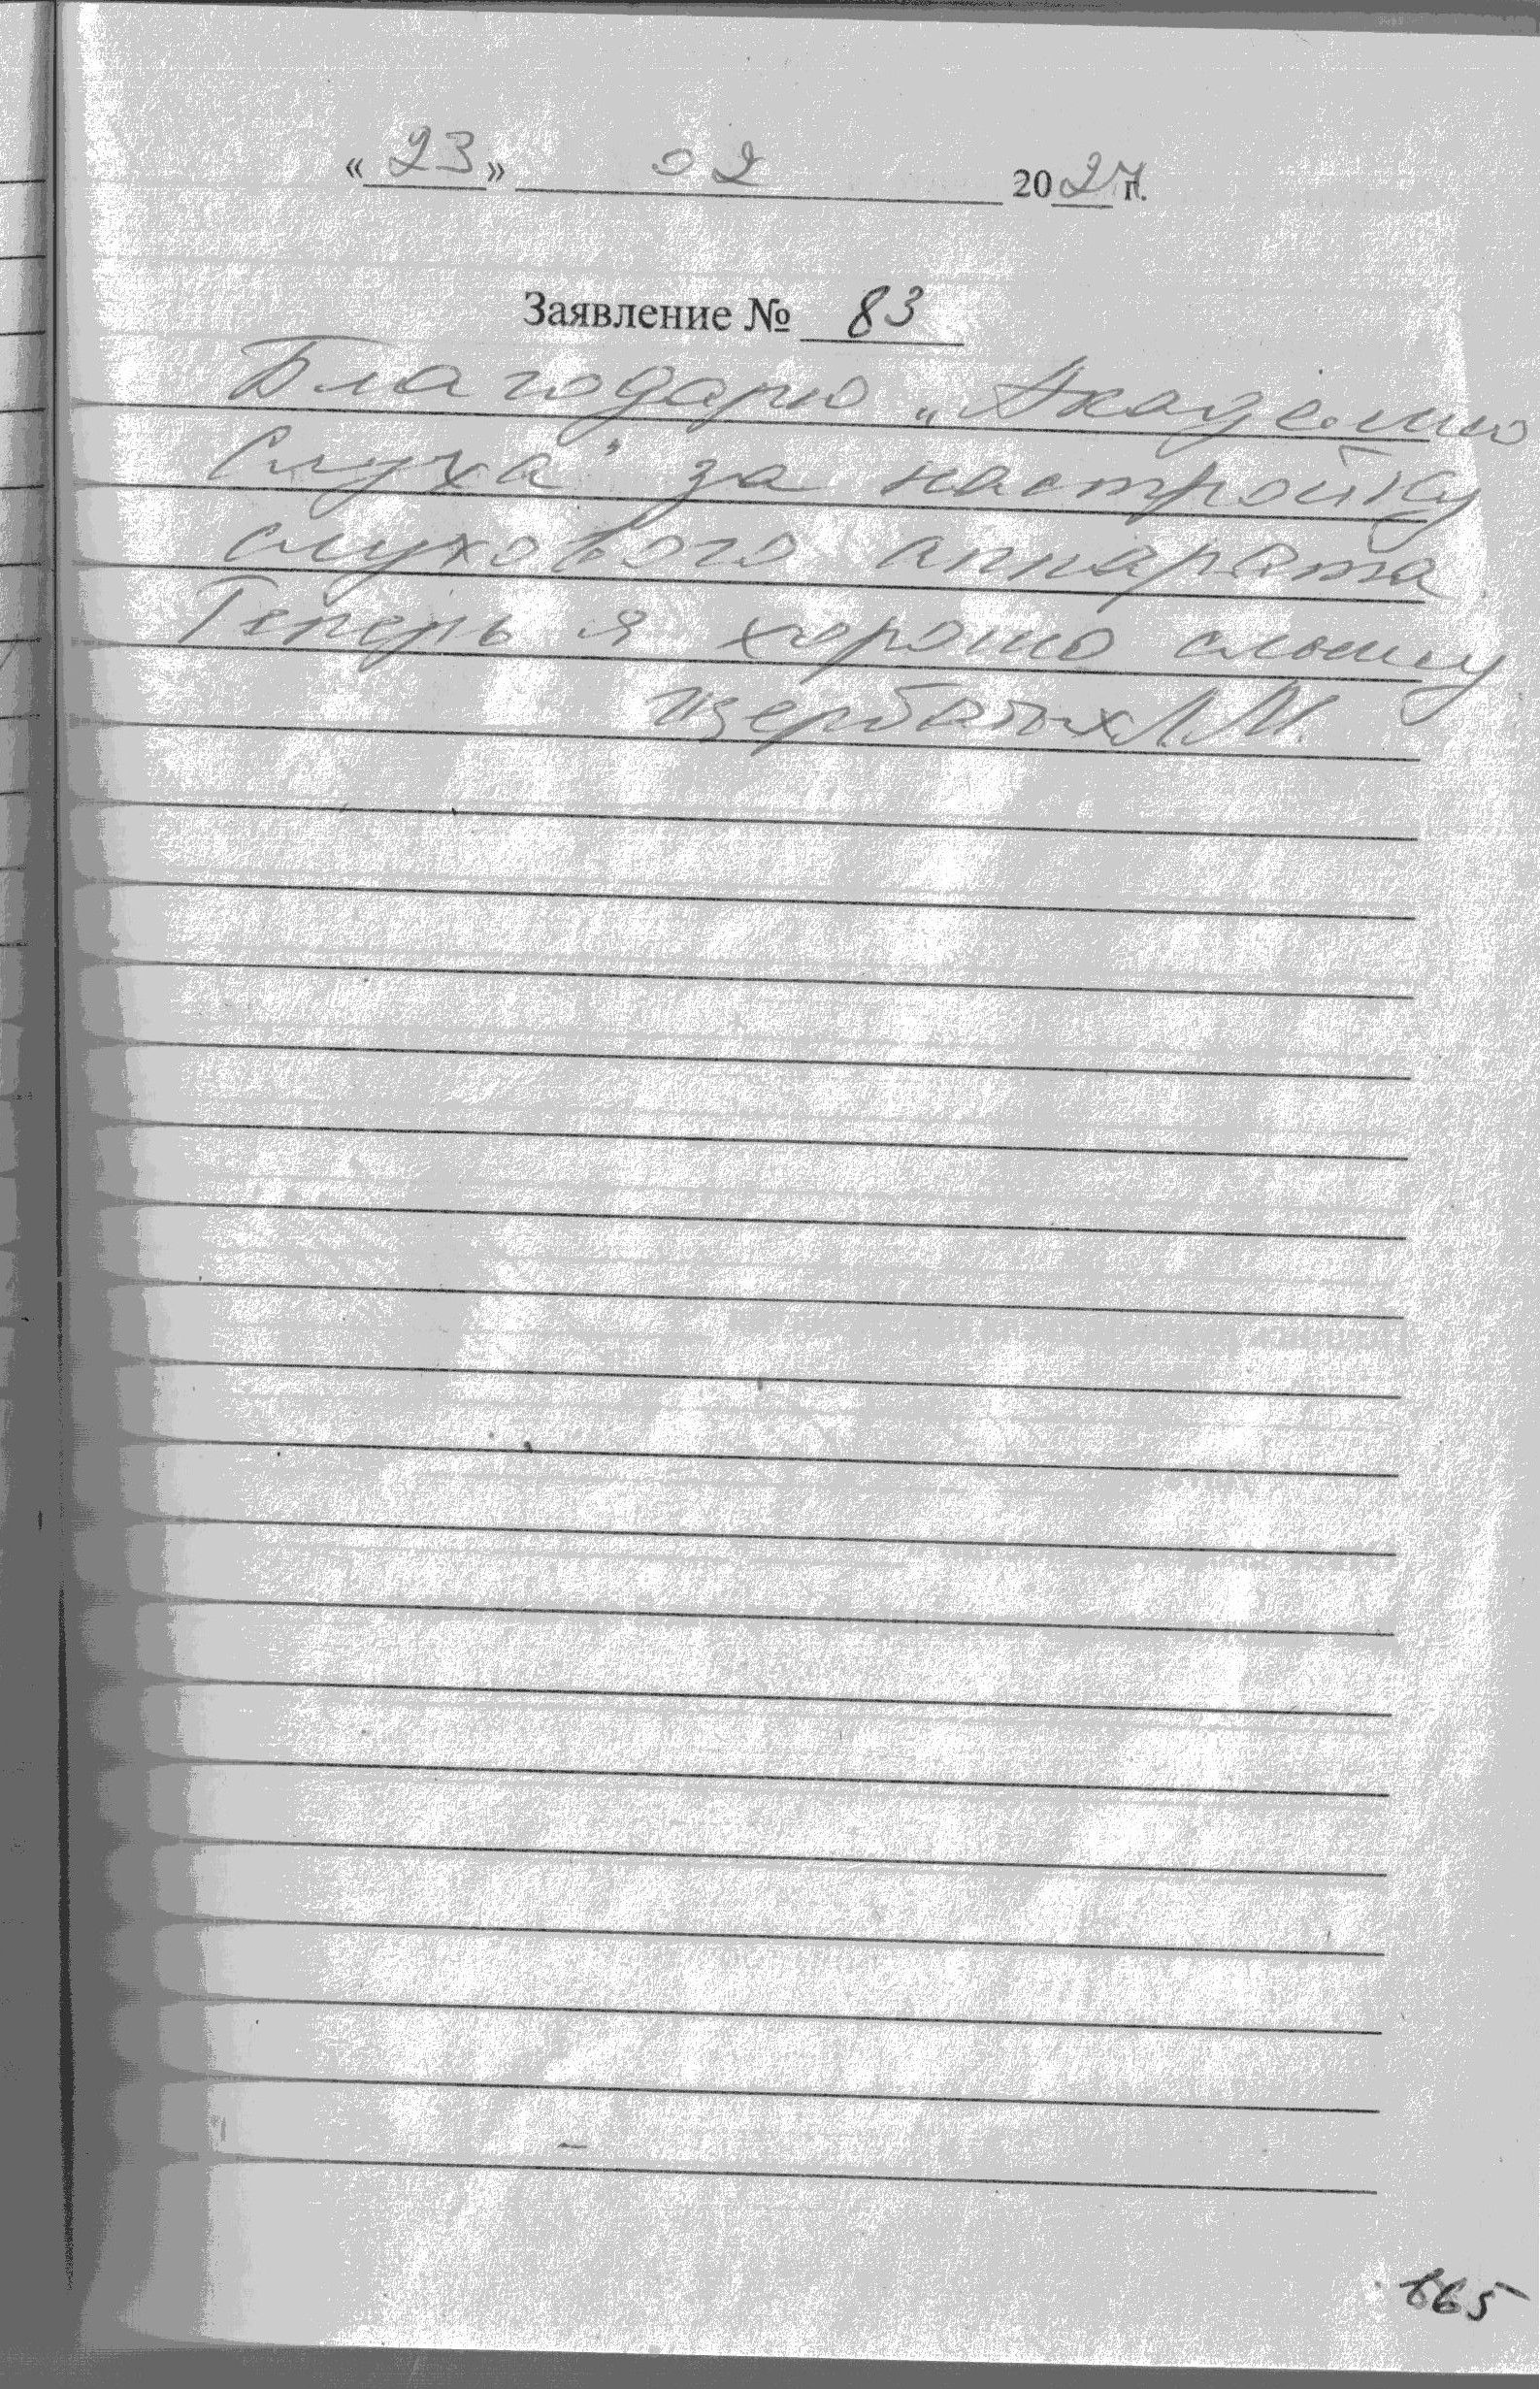 « 23 » 02 2024 г.
Заявление № 83
Благодарю „Академию
Слуха" за настройку
слухового аппарата.
Теперь я хорошо слышу
Щербатых Л.М.
165